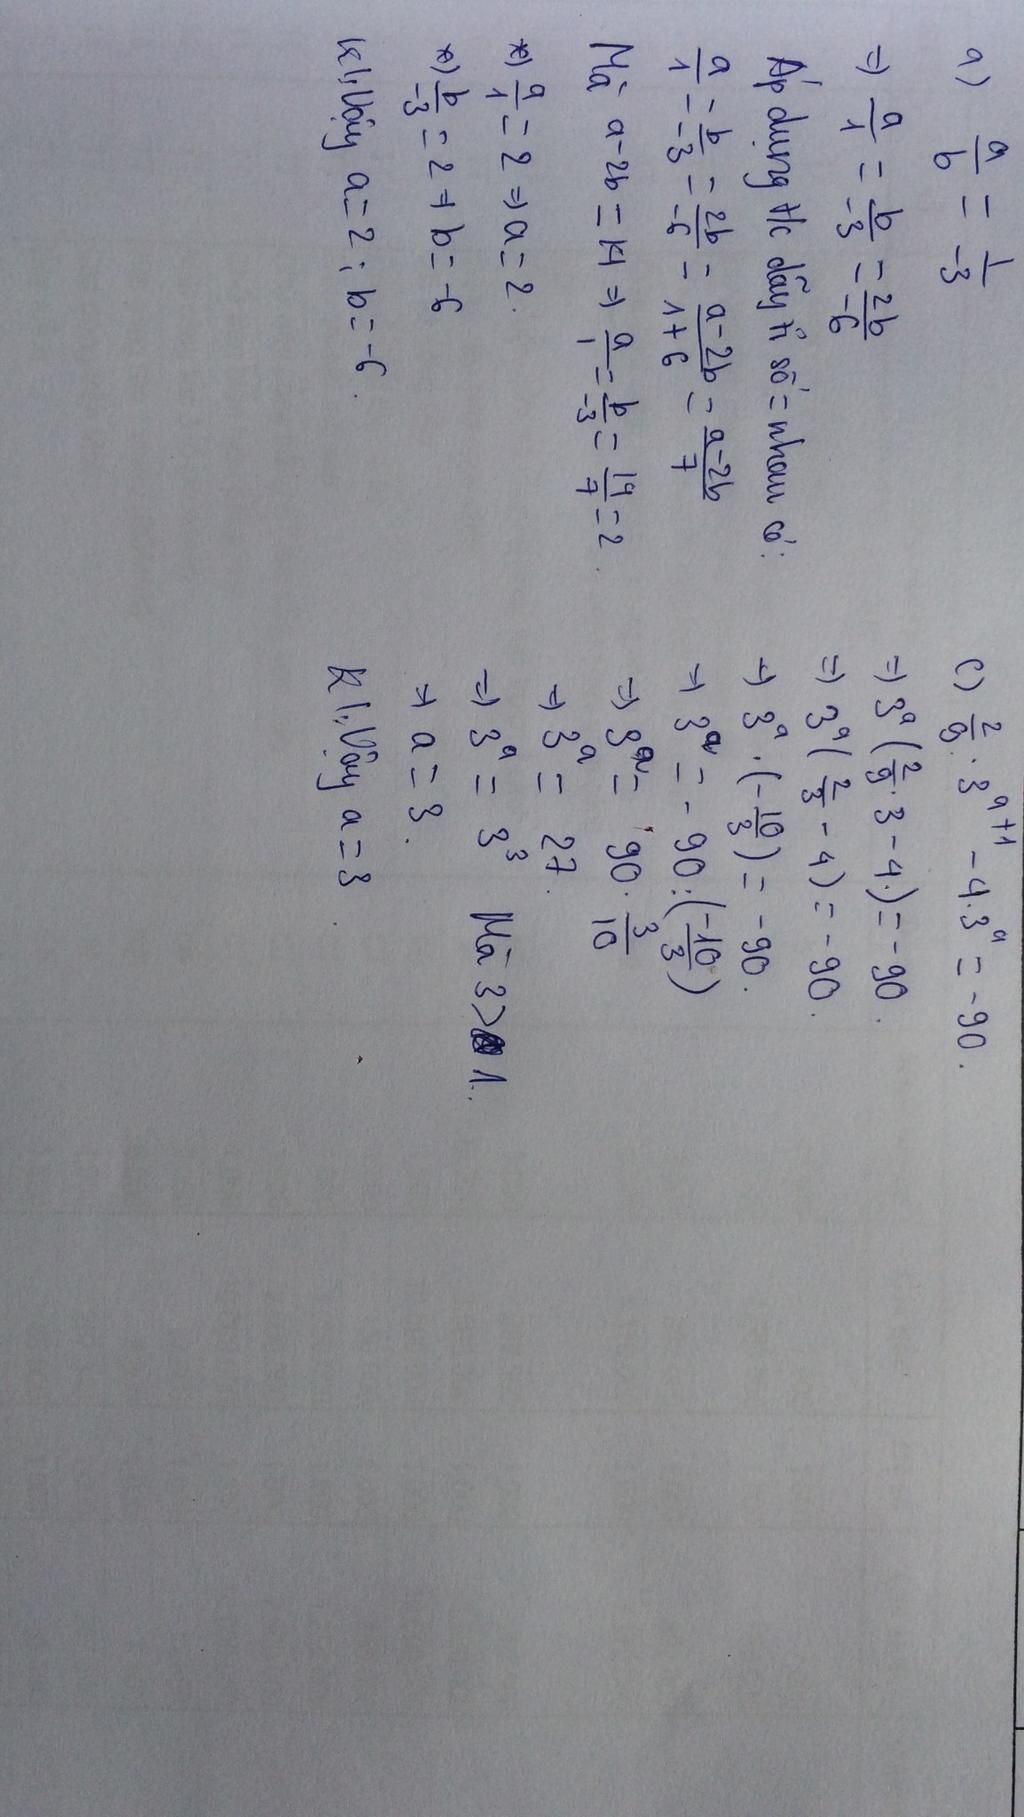 a) a/b = 1/-3
=> a/1 = b/-3 = 2b/-6
Áp dụng t/c dãy tỉ số = nhau có:
a/1 = b/-3 = 2b/-6 = a-2b/1+6 = a-2b/7
Mà a-2b = 14 => a/1 = b/-3 = 14/7 = 2.
*) a/1 = 2 => a = 2.
*) b/-3 = 2 => b = -6
Kl: Vậy a = 2; b = -6.
c) 2/9 . 3^(a+1) - 4.3^a = -90.
=> 3^a (2/9 . 3 - 4.) = -90.
=> 3^a (2/3 - 4) = -90.
=> 3^a . (-10/3) = -90.
=> 3^a = -90 : (-10/3)
=> 3^a = 90 . 3/10
=> 3^a = 27.
=> 3^a = 3^3 Mà 3 > 1.
=> a = 3.
Kl: Vậy a = 3.